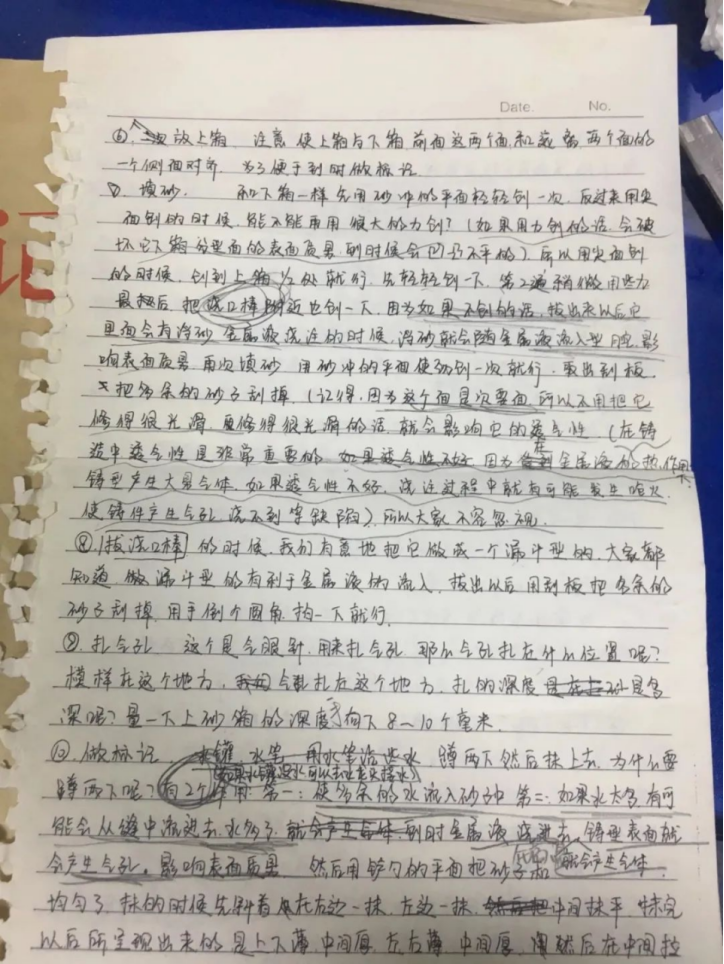 Date.  No.
⑥ 放上箱 注意 使上箱与下箱 前面这两个面和 两个面的
一个侧面对齐 为了便于到时做标记.
⑦. 填砂. 和下箱一样先用砂冲的平面轻轻 一次, 反过来用尖
面 的时候, 能不能再用很大的力 ? (如果用力 的话, 会破
坏它下箱分型面的表面质量 到时候会凹凸不平的) 所以用尖面
的时候, 到上箱1/2处就行. 先轻轻 一下. 第2遍稍微用些力
最后, 把浇口棒附近也 一下. 因为如果不 的话, 拔出来以后它
里面会有浮砂 金属液浇注的时候, 浮砂就会随金属液流入型腔. 影
响表面质量 再次填砂 用砂冲的平面使劲 一次就行, 取出刮板
把多余的砂子刮掉 (记得, 因为这个面是次要面, 所以不用把它
修得很光滑, 修得很光滑的话 就会影响它的透气性. (在铸
造中透气性是非常重要的 如果透气性不好 因为在金属液的热作用下
铸型产生大量气体. 如果透气性不好, 浇注过程中就有可能发生呛火
使铸件产生气孔 浇不到等缺陷), 所以大家不容忽视.
⑧. 拔浇口棒 的时候, 我们有意地把它做成一个漏斗型的, 大家都
知道, 做漏斗型的有利于金属液的流入. 拔出以后用刮板把多余的
砂子刮掉, 用手倒个圆角 一下就行.
⑨. 扎气孔 这个是气眼针, 用来扎气孔 那么气孔扎在什么位置呢?
模样在这个地方, 气孔扎在这个地方, 扎的深度 是多
深呢? 量一下上砂箱的深度 向下8~10个毫米.
⑩. 做标记 水罐 水笔 用水笔沾些水 蹲两下然后抹上去. 为什么要
(如果水罐没水可以去 接水)
蹲两下呢? 有2个作用 第一: 使多余的水流入砂子中 第二: 如果水太多, 有可
能会从缝中流进去, 水多了 就会产生气体 到时金属液浇进去, 铸型表面就
会产生气孔. 影响表面质量 然后用铲勺的平面把砂子 就会产生气体
均匀了 抹的时候先斜着 在右边一抹, 左边一抹, 然后把中间抹平 抹完
以后所呈现出来的是上下薄, 中间厚, 左右薄 中间厚, 然后在中间